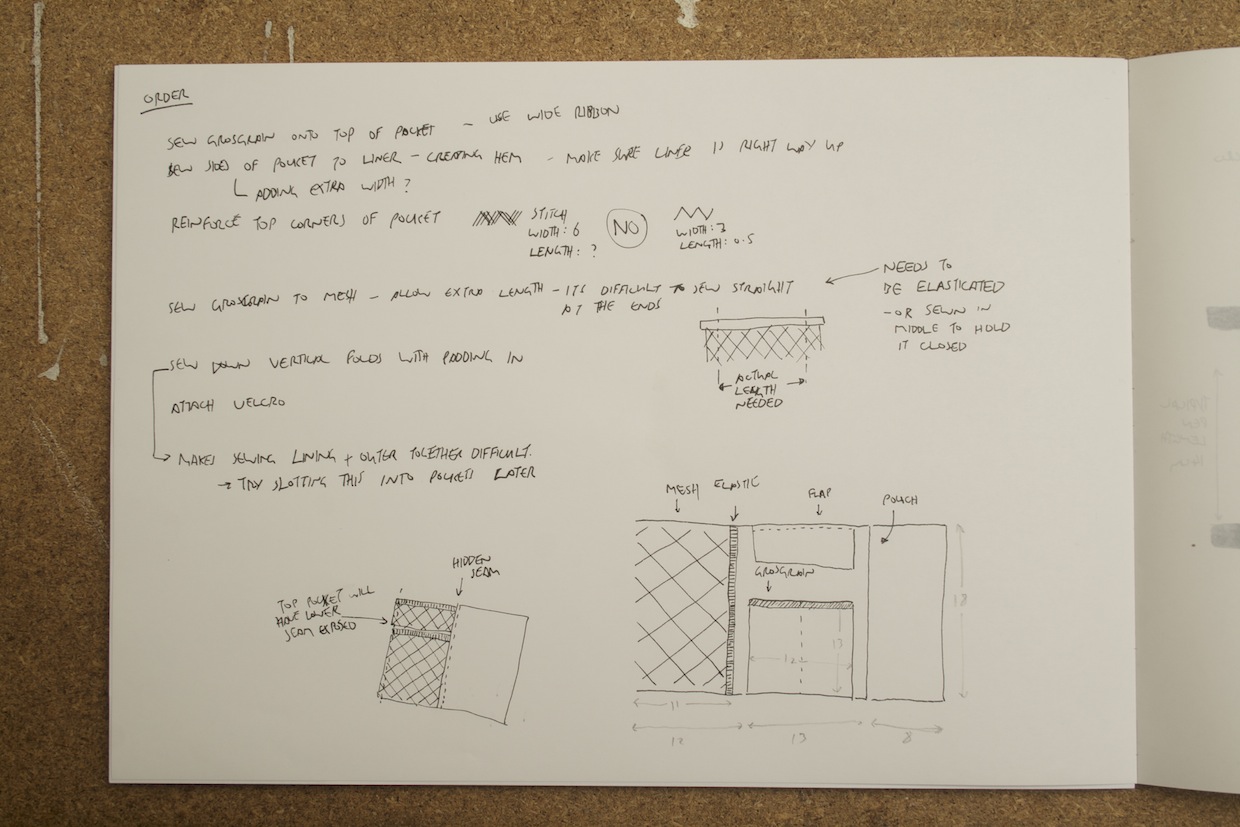 ORDER
SEW GROSGRAIN ONTO TOP OF POCKET - USE WIDE RIBBON
SEW SIDES OF POCKET TO LINER - CREATING HEM - MAKE SURE LINER IS RIGHT WAY UP
ADDING EXTRA WIDTH?
REINFORCE TOP CORNERS OF POCKET
STITCH
WIDTH: 6
LENGTH: ?
NO
WIDTH: 3
LENGTH: 0.5
SEW GROSGRAIN TO MESH - ALLOW EXTRA LENGTH - ITS DIFFICULT TO SEW STRAIGHT
AT THE ENDS
NEEDS TO
BE ELASTICATED
- OR SEWN IN
MIDDLE TO HOLD
IT CLOSED
ACTUAL
LENGTH
NEEDED
SEW DOWN VERTICAL FOLDS WITH PADDING IN
ATTACH VELCRO
MAKES SEWING LINING + OUTER TOGETHER DIFFICULT.
→ TRY SLOTTING THIS INTO POCKETS LATER
HIDDEN
SEAM
TOP POCKET WILL
HAVE LOWER
SEAM EXPOSED
MESH ELASTIC FLAP POUCH
GROSGRAIN
18
13
12
11
12 13 8
TYPICAL
PEN
LENGTH